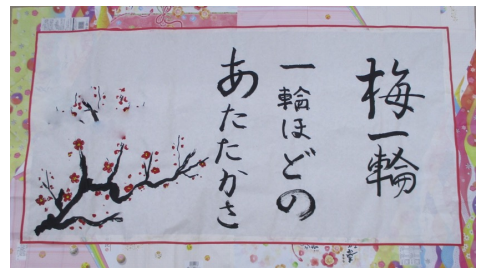 梅一輪
一輪ほどの
あたたかさ